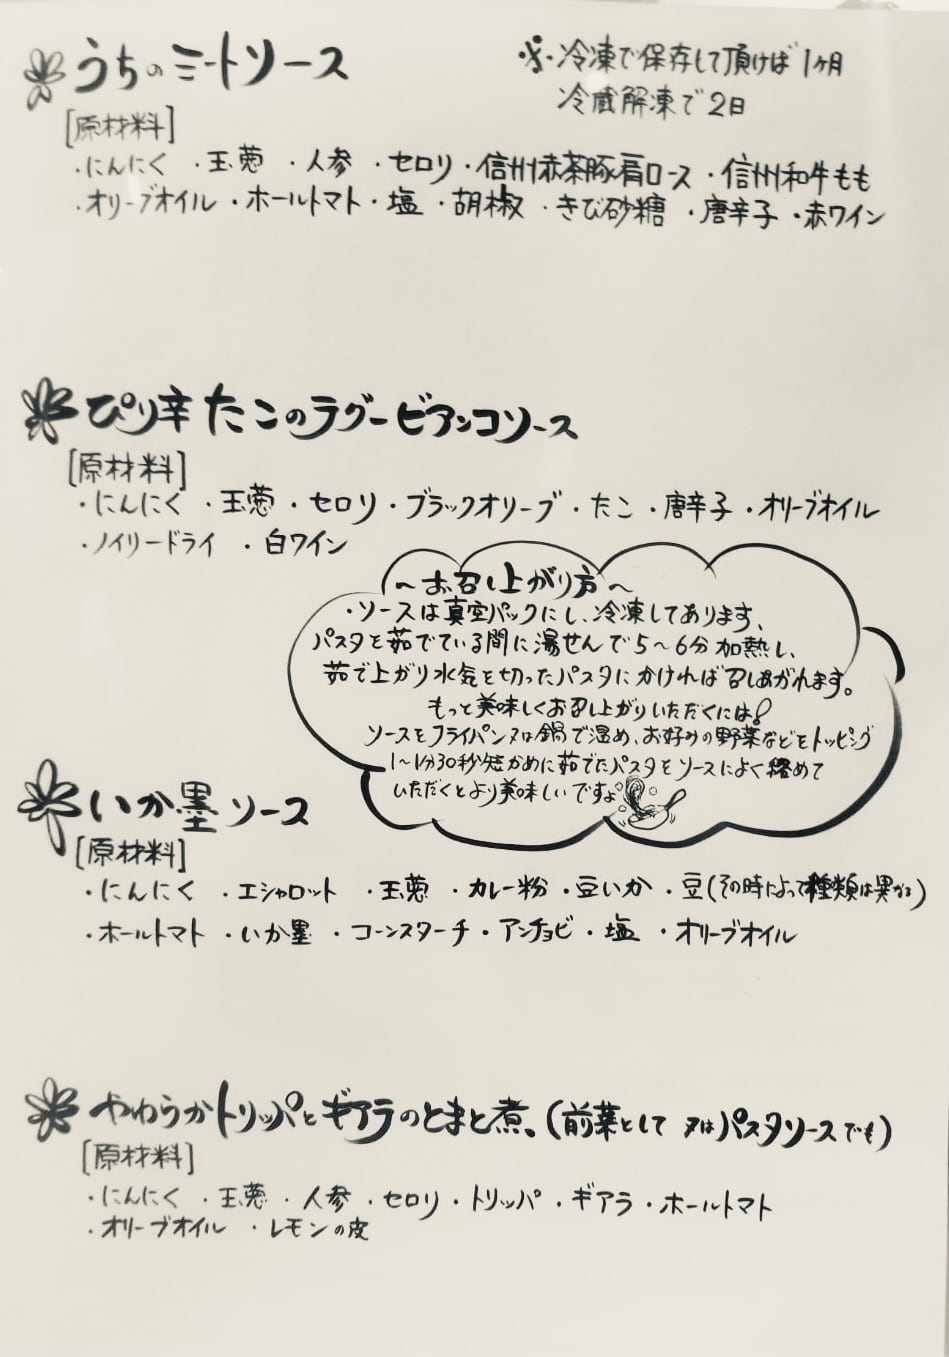 うちのミートソース
※冷凍で保存して頂ければ1ヶ月
冷蔵解凍で2日
[原材料]
・にんにく ・玉葱 ・人参 ・セロリ ・信州赤茶豚肩ロース ・信州和牛もも
・オリーブオイル ・ホールトマト ・塩 ・胡椒 ・きび砂糖 ・唐辛子 ・赤ワイン
ぴり辛たこのラグービアンコソース
[原材料]
・にんにく ・玉葱 ・セロリ ・ブラックオリーブ ・たこ ・唐辛子 ・オリーブオイル
・ノイリードライ ・白ワイン
〜お召し上がり方〜
・ソースは真空パックにし、冷凍してあります、
パスタを茹でている間に湯せんで5〜6分加熱し、
茹で上がり水気を切ったパスタにかければ召しあがれます。
もっと美味しくお召し上がりいただくには!
ソースをフライパン又は鍋で温め、お好みの野菜などをトッピング
1〜1分30秒短かめに茹でたパスタをソースによく絡めて
いただくとより美味しいですよ
いか墨ソース
[原材料]
・にんにく ・エシャロット ・玉葱 ・カレー粉 ・豆いか ・豆(その時によって種類は異なる)
・ホールトマト ・いか墨 ・コーンスターチ ・アンチョビ ・塩 ・オリーブオイル
やわらかトリッパとギアラのとまと煮、(前菜として 又はパスタソースでも)
[原材料]
・にんにく ・玉葱 ・人参 ・セロリ ・トリッパ ・ギアラ ・ホールトマト
・オリーブオイル ・レモンの皮